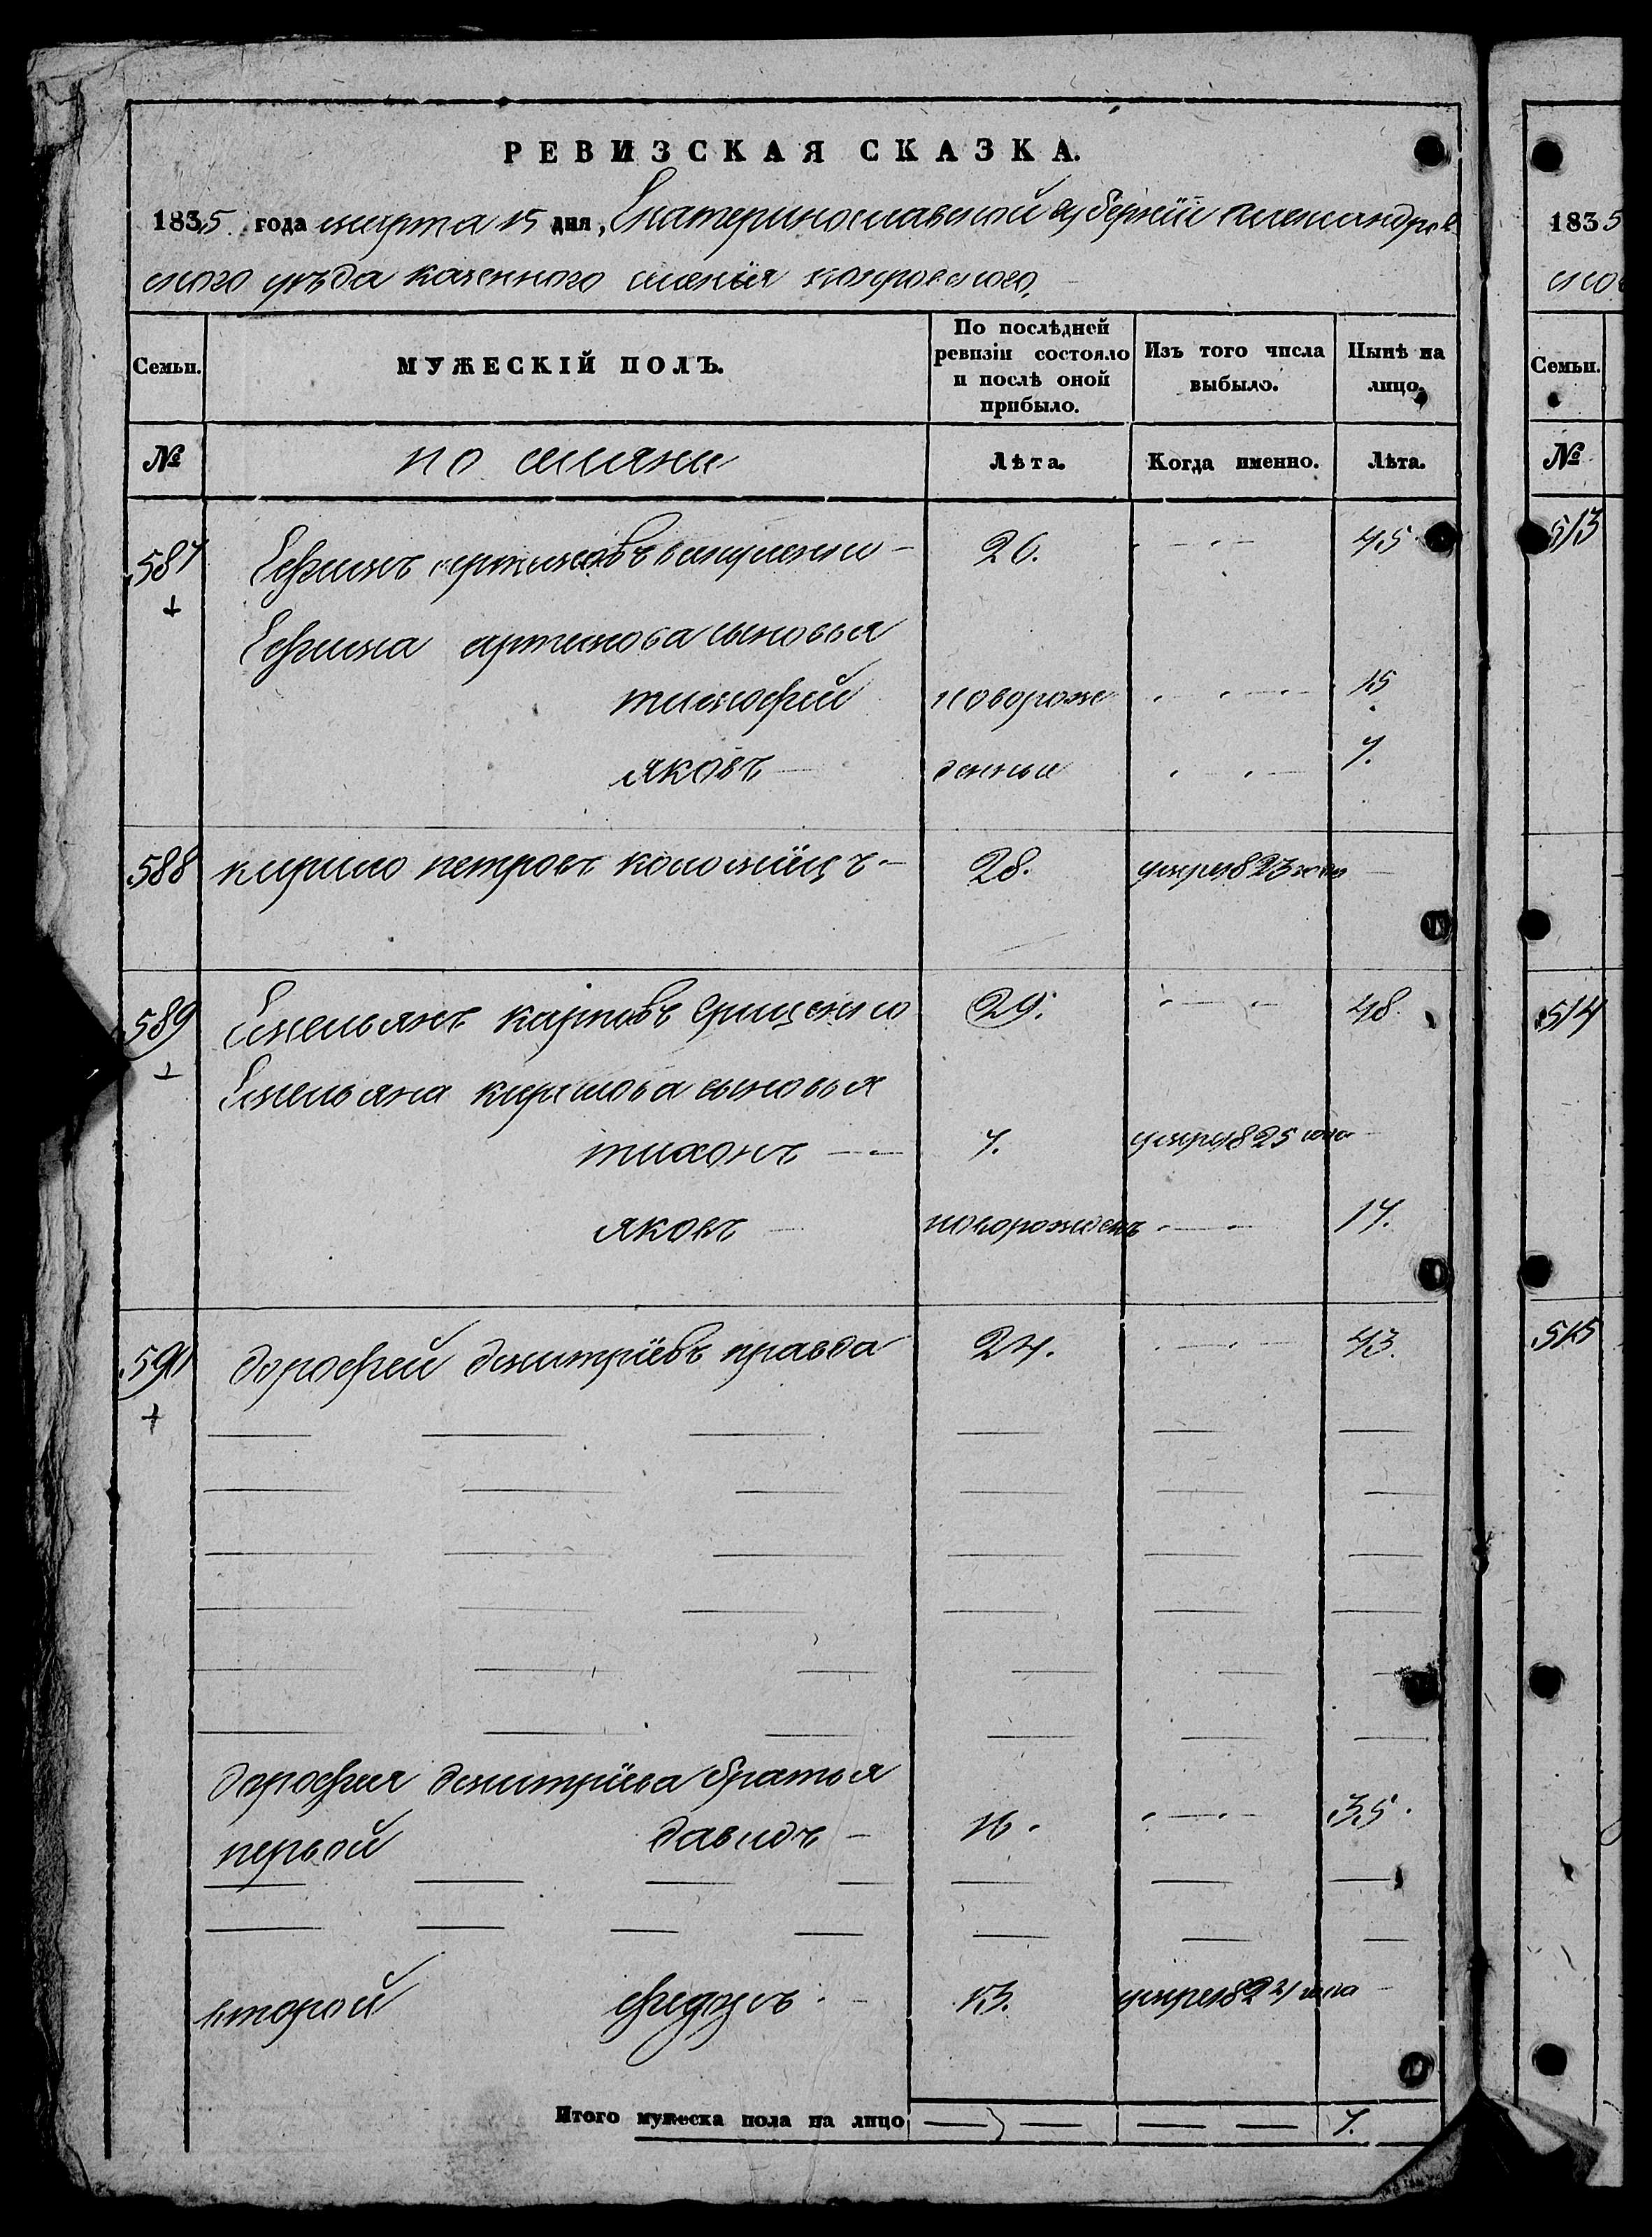 РЕВИЗСКАЯ СКАЗКА.
1835 года марта 15 дня, Екатеринославской губернїи александров
ского уѣзда казенного имѣнїя покровского.
Семьи. МУЖЕСКІЙ ПОЛЪ. По послѣдней ревизіи состояло и послѣ оной прибыло. Изъ того числа выбыло. Нынѣ на лицо.
№ Лѣта. Когда именно. Лѣта.
587 Ефимъ артимовъ 26. 45
Ефима артимова сыновья
тимофей новорож 15
яковъ денныи 7.
588 кирило петровъ коломїицъ 28. умеръ 823 года
589 Емельянъ карповъ грищенко 29. 48
Емельяна сыновья
тихонъ 7. умеръ 825 года
яковъ новорожденъ 17.
590 дорофей дмитрїевъ правда 24. 43.
дорофея дмитрїева братья
первой давидъ 16. 35.
второй 13. умеръ 824 года
Итого мужеска пола на лицо 7.
1835
ско
Семьи.
№
513
514
515